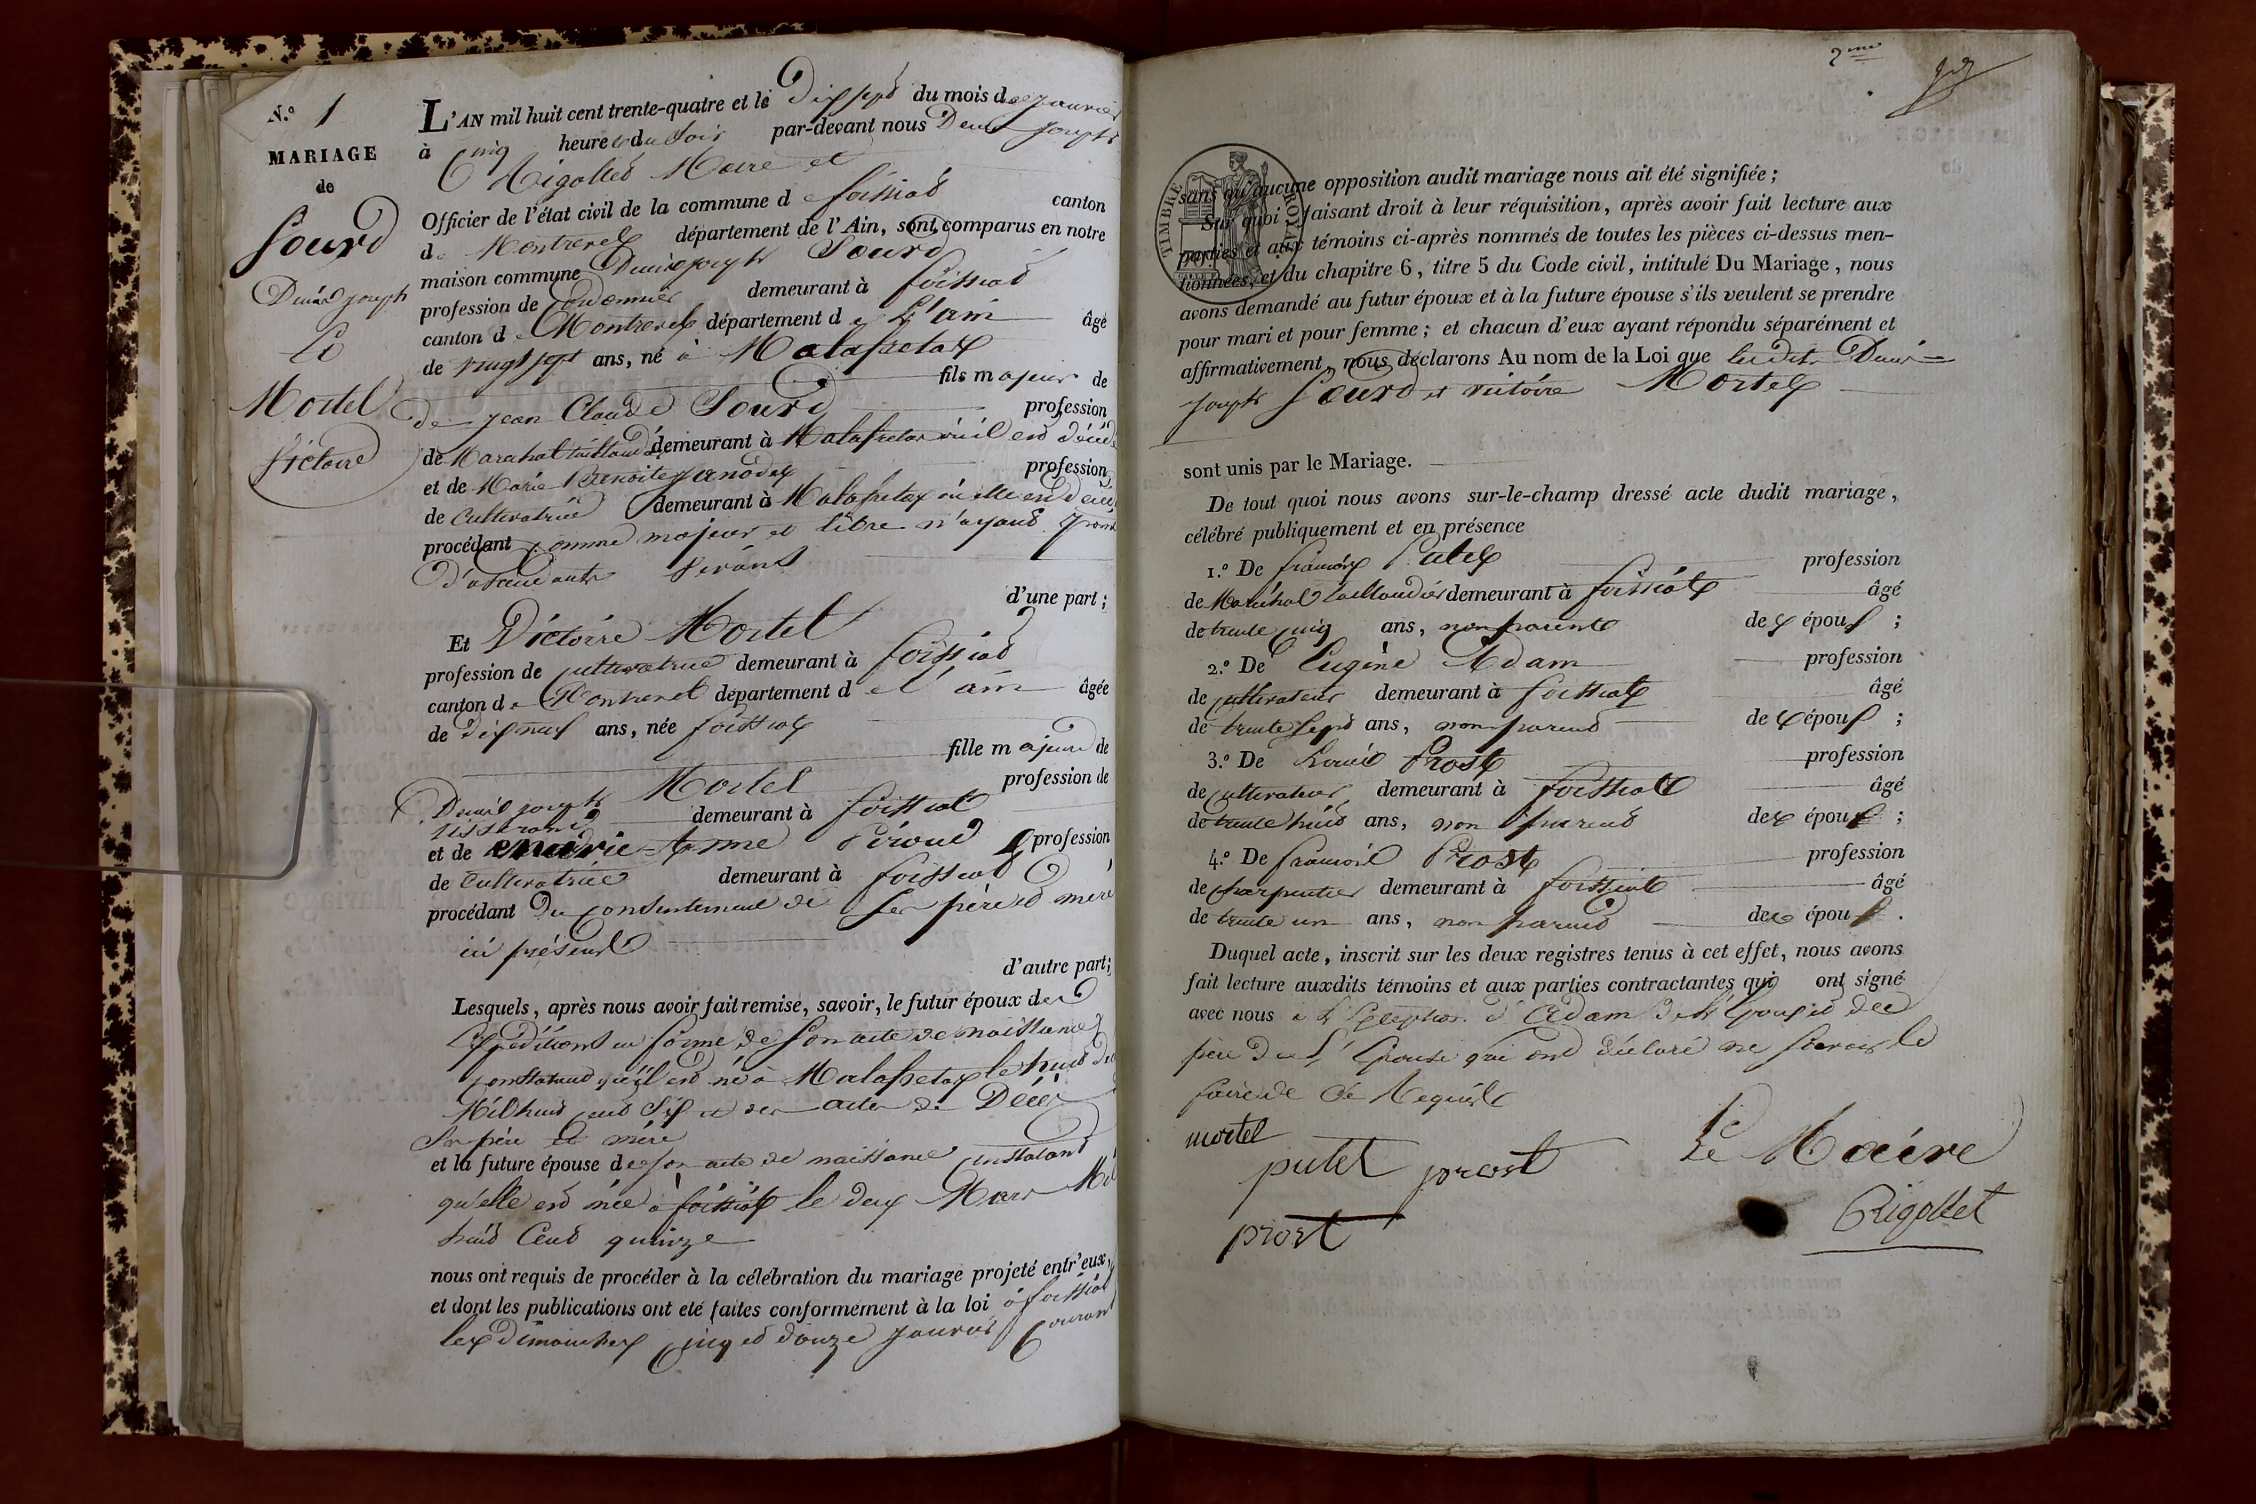 N.º 1
MARIAGE
de
Sourd
Denis joseph
Et
Mortel
Victoire
L'AN mil huit cent trente-quatre et le Dix sept du mois de janvier
à Cinq heures du Soir par-devant nous Denis Joseph
Rigollet Maire et
Officier de l'état civil de la commune de foissiat canton
de Montrevel département de l'Ain, sont comparus en notre
maison commune Denis joseph Sourd
profession de Cordonnier demeurant à foissiat
canton de Montrevel département de L'ain âgé
de vingt sept ans, né à Malafretaz
fils majeur de
de jean Claude Sourd profession
de Marechal taillandier demeurant à Malafretaz où il est décédé
et de Marie Benoite janodet profession
de Cultivatrice demeurant à Malafretaz où elle est décédé
procédant comme majeur et libre n'ayant point
d'ascendants vivants
d'une part ;
Et Victoire Mortel
profession de cultivatrice demeurant à foissiat
canton de Montrevel département de L'ain âgée
de dix neuf ans, née foissiat
fille majeure de
Denis joseph Mortel profession de
tisserand demeurant à foissiat
et de Marie Anne Piroud profession
de Cultivatrice demeurant à foissiat
procédant Du consentement de ses père et mère
ici présents
d'autre part ;
Lesquels, après nous avoir fait remise, savoir, le futur époux des
Expéditions en forme de son acte de naissance
constatant qu'il est né à Malafretaz le huit
Mil huit cent Six et des actes de Décès
Ses père et mère
et la future épouse de son acte de naissance constatant
qu'elle est née à foissiat le deux Mars Mil
huit Cent quinze
nous ont requis de procéder à la célébration du mariage projeté entr'eux,
et dont les publications ont eté faites conformément à la loi à foissiat
les dimanches cinq et douze janvier Courant
2me
TIMBRE ROYAL
sans qu'aucune opposition audit mariage nous ait été signifiée ;
Sur quoi faisant droit à leur réquisition, après avoir fait lecture aux
parties et aux témoins ci-après nommés de toutes les pièces ci-dessus men-
tionnées, et du chapitre 6, titre 5 du Code civil, intitulé Du Mariage, nous
avons demandé au futur époux et à la future épouse s'ils veulent se prendre
pour mari et pour femme ; et chacun d'eux ayant répondu séparément et
affirmativement, nous declarons Au nom de la Loi que les dits Denis=
joseph Sourd et victoire Mortel
sont unis par le Mariage.
De tout quoi nous avons sur-le-champ dressé acte dudit mariage,
célébré publiquement et en présence
1.º De françois Putet profession
de Maréchal taillandier demeurant à foissiat âgé
de trente cinq ans, non parent des époux ;
2.º De Eugène Adam profession
de cultivateur demeurant à foissiat âgé
de trente sept ans, non parent des époux ;
3.º De Louis Prost profession
de cultivateur demeurant à foissiat âgé
de trente huit ans, non parent des époux ;
4.º De françois Prost profession
de charpentier demeurant à foissiat âgé
de trente un ans, non parent des époux.
Duquel acte, inscrit sur les deux registres tenus à cet effet, nous avons
fait lecture auxdits témoins et aux parties contractantes qui ont signé
avec nous à L'exception d'Adam De L'épouse et des
père De L'épouse qui ont déclaré ne savoir le
faire de ce Requis
mortel
putet prost
prost
Le Maire
Rigollet